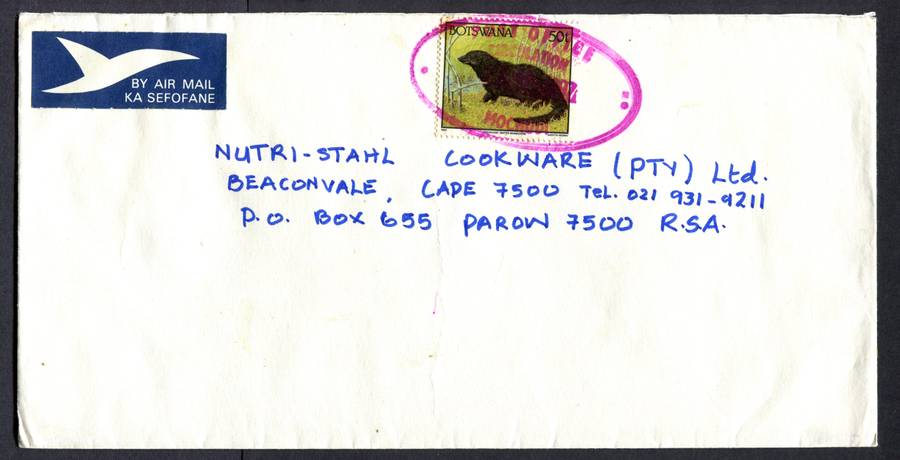 BY AIR MAIL
KA SEFOFANE
BOTSWANA 50t
NUTRI-STAHL COOKWARE (PTY) Ltd.
BEACONVALE, CAPE 7500 TEL. 021 931-9211
P.O. BOX 655 PAROW 7500 R.S.A.